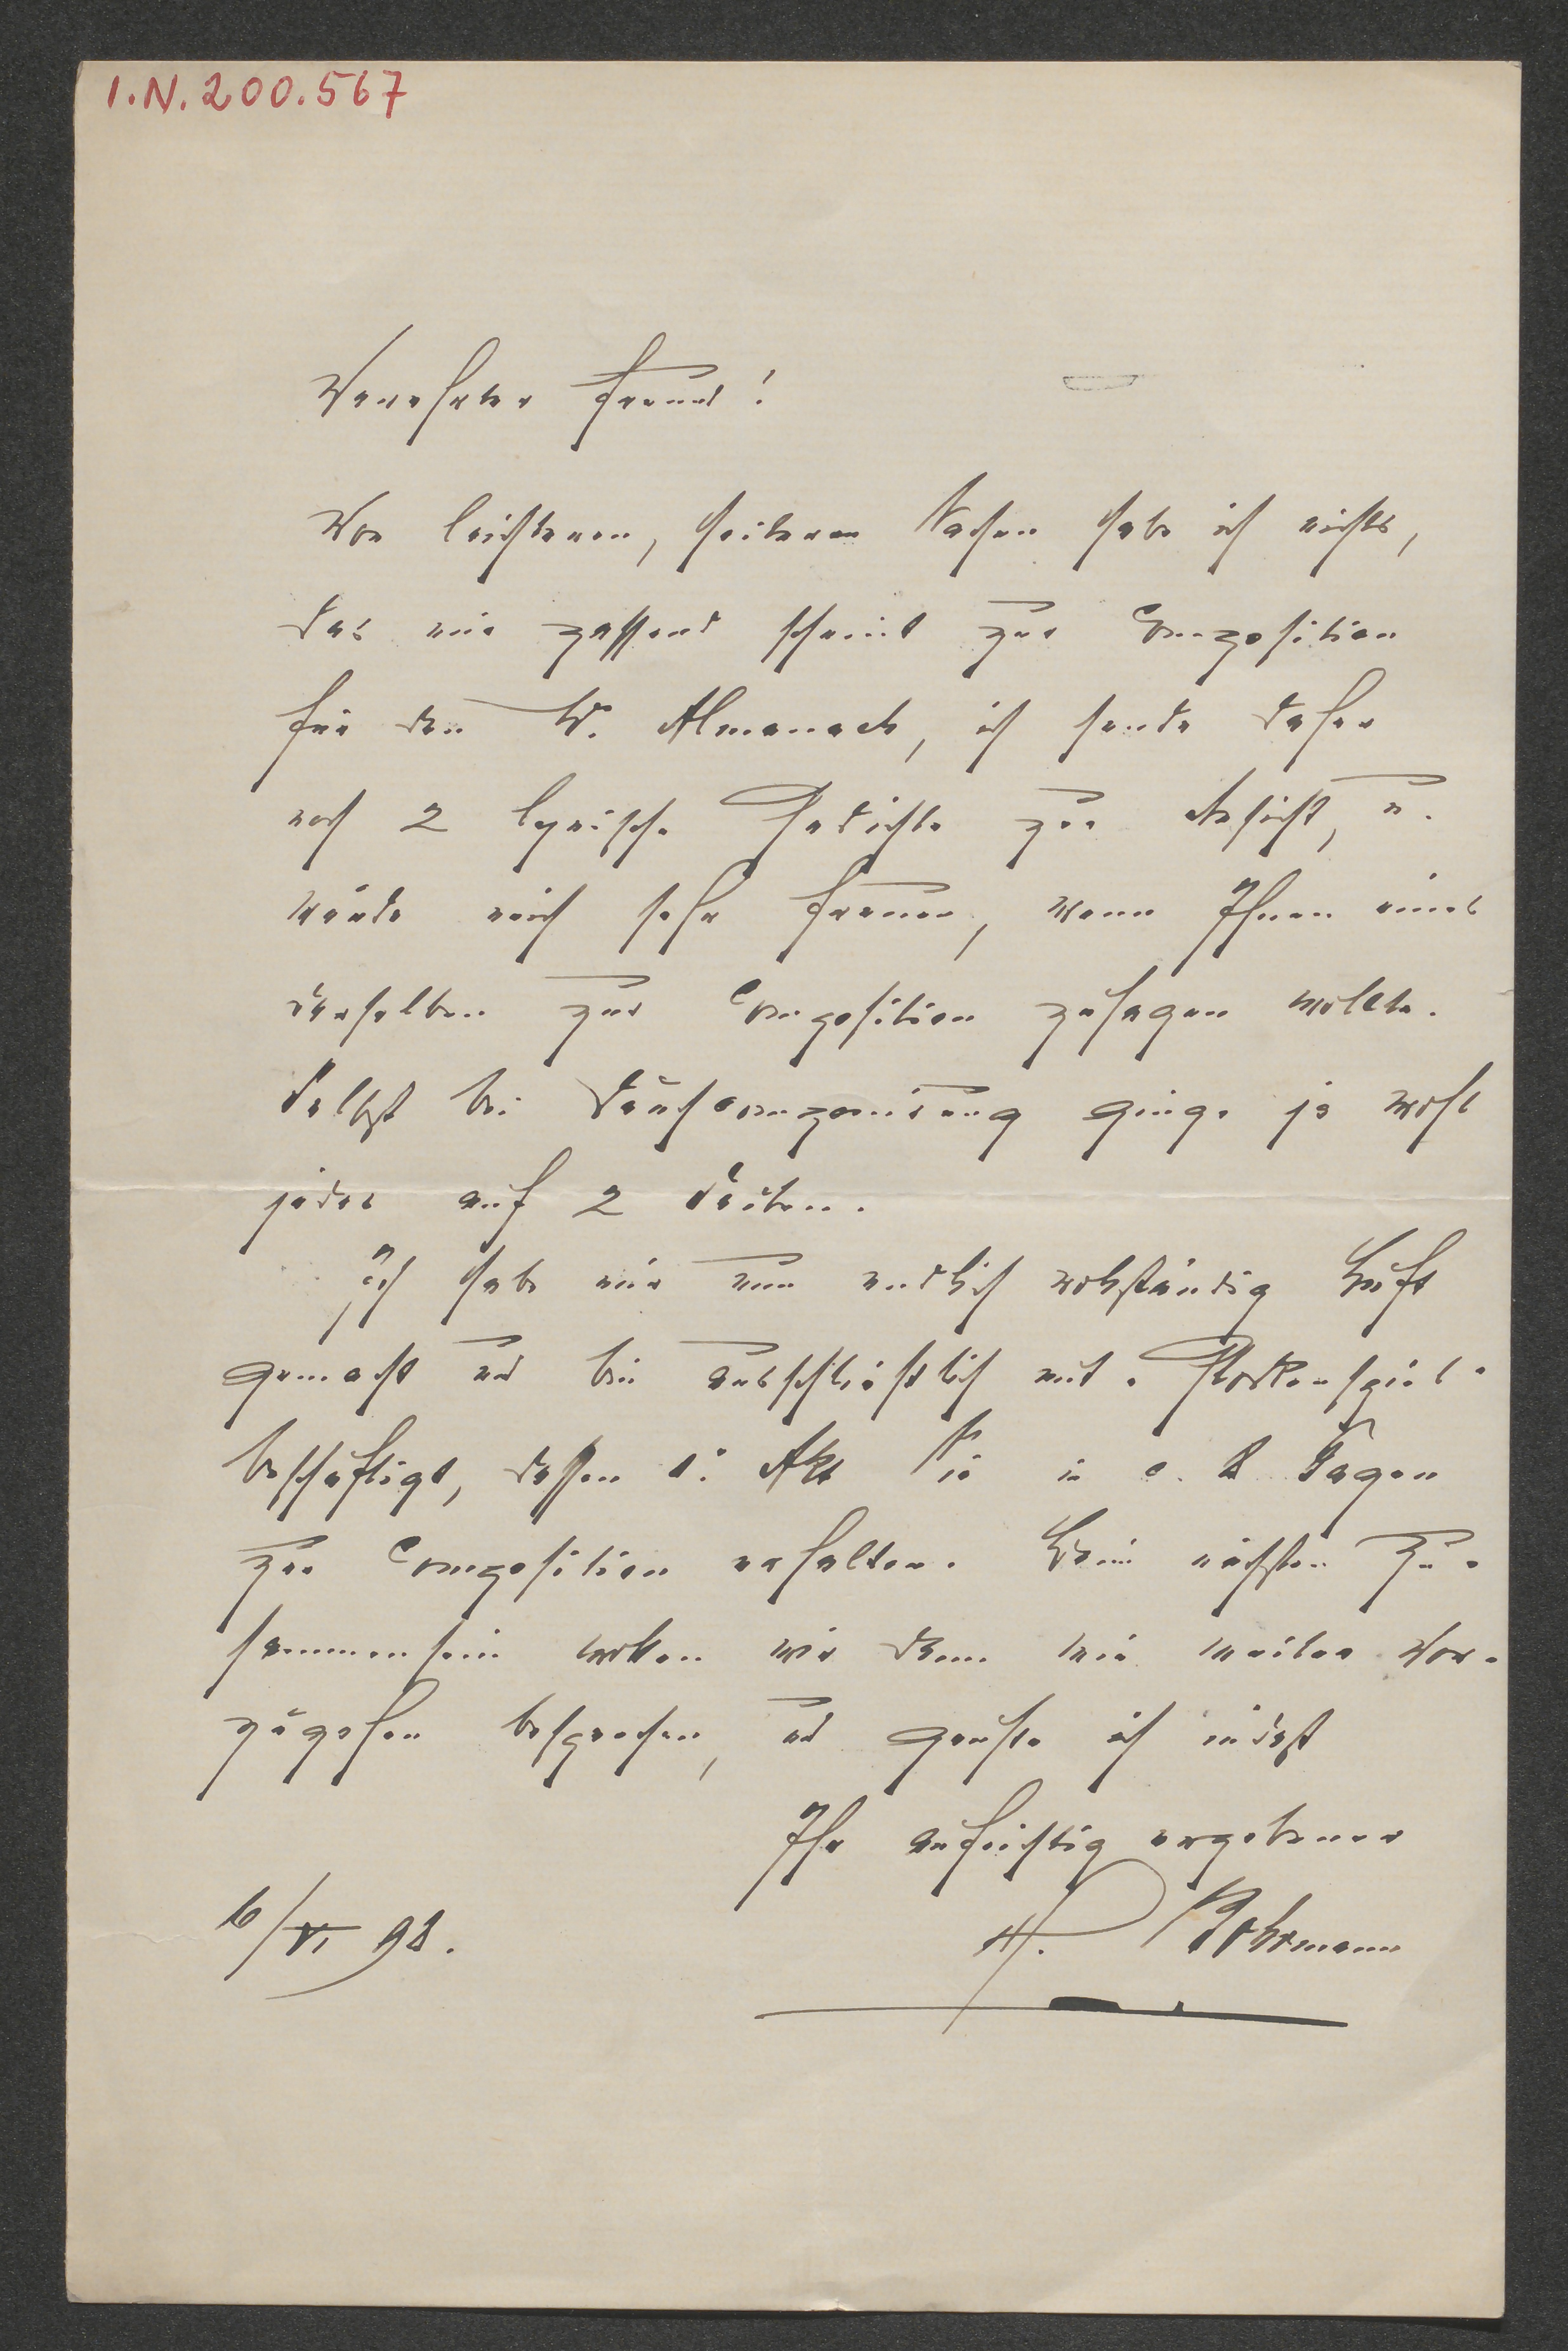 I.N. 200.567
Verehrter Freund!
Von leichteren, heiteren Sachen habe ich nichts,
das mir passend scheint zur Composition
für den W. Almanach, ich sende daher
noch 2 lyrische Gedichte zur Ansicht, u.
würde mich sehr freuen, wenn Ihnen eines
derselben zur Composition zusagen wollte.
Selbst bei Durchcomponirung ginge ja wohl
jedes auf 2 Seiten.
Ich habe mir nun endlich vollständig Luft
gemacht und bin ausschließlich mit „Glockenspiel“
beschäftigt, dessen 1. Akt Sie in c. 8 Tagen
zur Composition erhalten. Beim nächsten Zu-
sammensein wollen wir dann wie weiter vor-
zugehen besprechen, und grüße ich indeß
Ihr aufrichtig ergebener
16/VI 98. H. Bohrmann